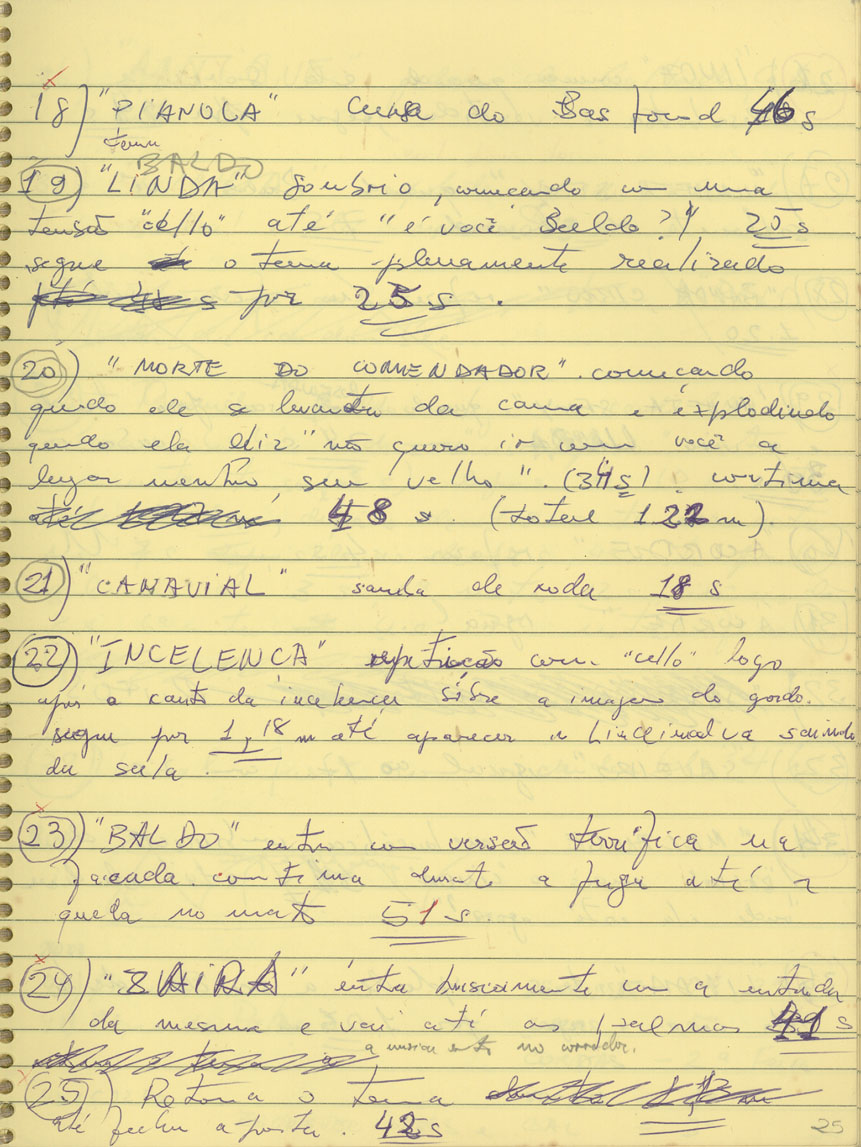 18) "PIANOLA" cursa do Bas fond 46 s
tem
BALDO
19) "LINDA" sombrio, começando com uma
tensão "cello" até "é você Baldo?" 25 s
segue o tema plenamente realizado
por 25 s.
20) "MORTE DO COMENDADOR". começando
quando ele se levanta da cama e explodindo
quando ela diz "não quero ir com você a
lugar nenhum seu velho". (34s). continua
48 s. (total 122 m).
21) "CANAVIAL" samba de roda 18 s
22) "INCELENCA" repetição com "cello" logo
após o canto da incelença sôbre a imagem do gordo.
segue por 1,18 m até aparecer a Lindinalva saindo
da sala.
23) "BALDO" entra com versão terrífica na
facada. continua durante a fuga até a
queda no mato 51 s
24) "ZAIRA" entra buscamente com a entrada
da mesma e vai até as palmas 41 s
a musica entra no corredor.
25) Retoma o tema
até fechar a porta. 42s
25